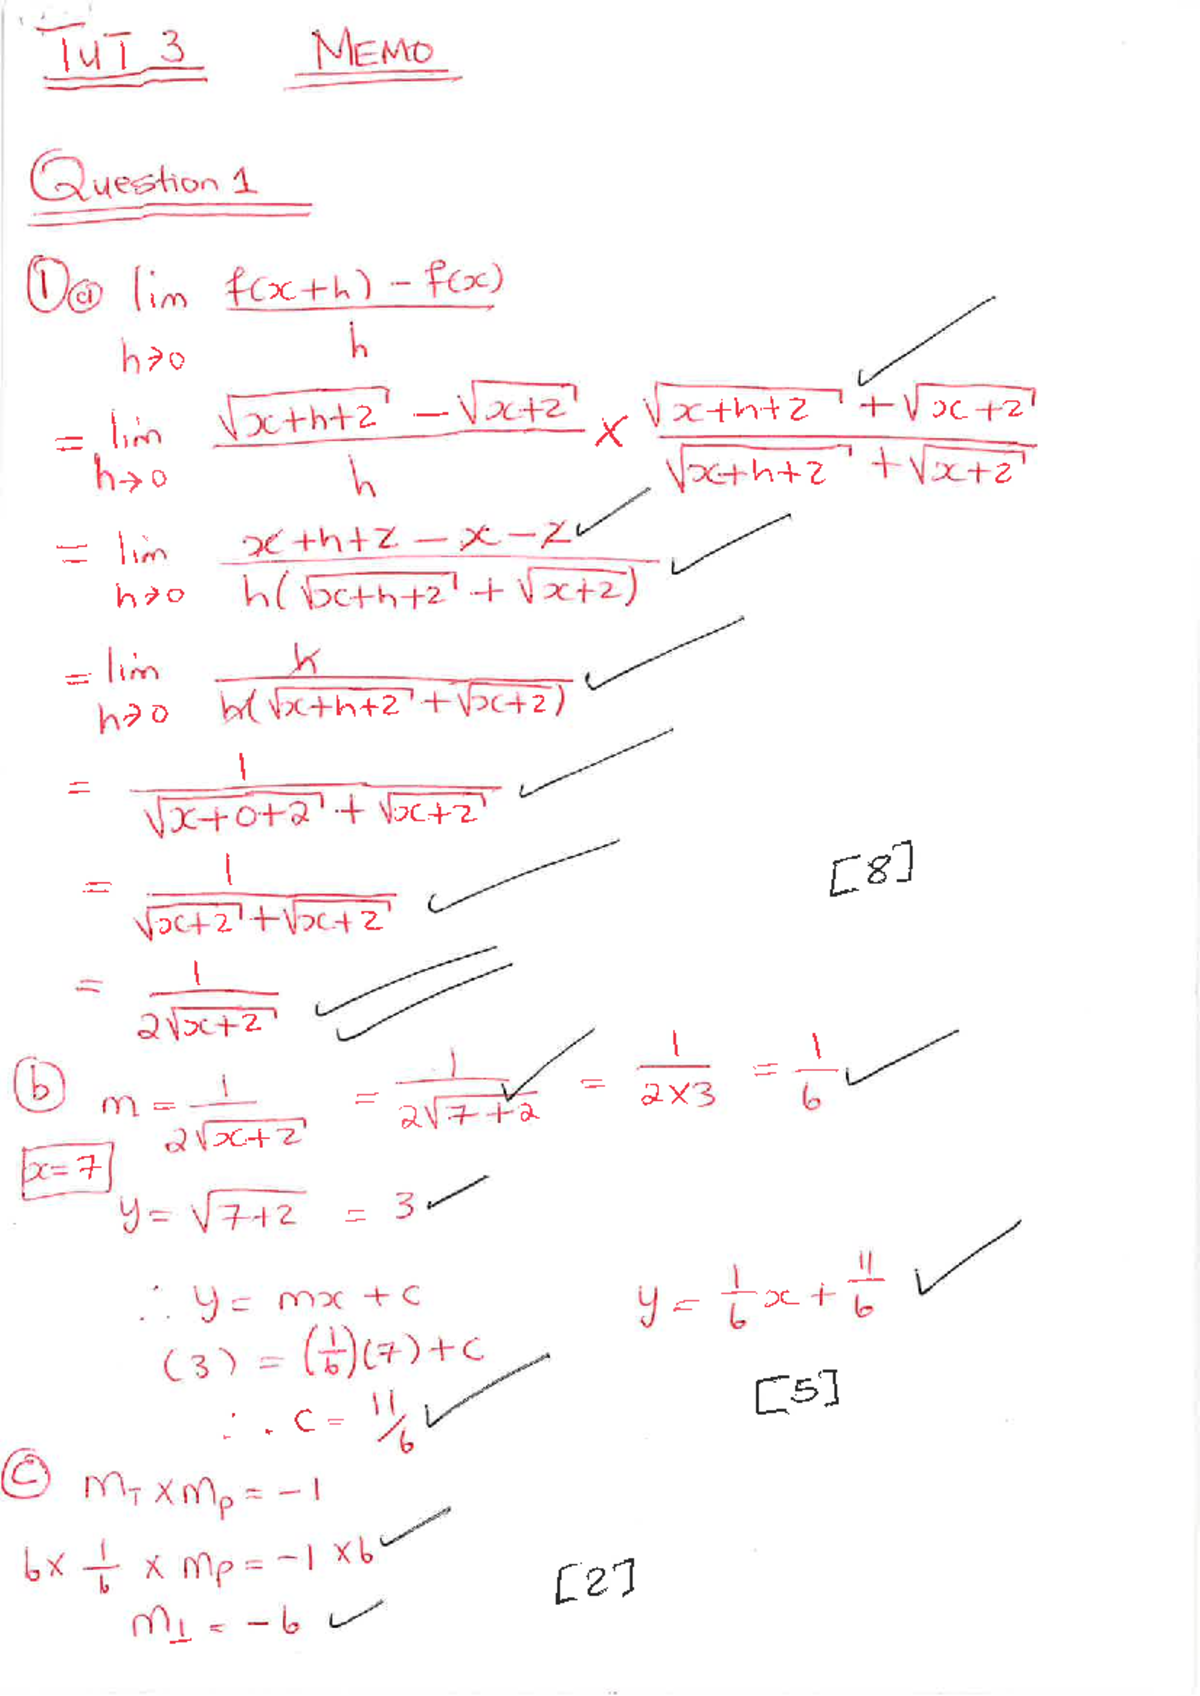 TUT 3 MEMO
Question 1
① ⓐ lim h→0 (f(x+h) - f(x))/h
= lim h→0 (√(x+h+2) - √(x+2))/h × (√(x+h+2) + √(x+2))/(√(x+h+2) + √(x+2))
= lim h→0 (x+h+2-x-2)/(h(√(x+h+2) + √(x+2)))
= lim h→0 h/(h(√(x+h+2) + √(x+2)))
= 1/(√(x+0+2) + √(x+2))
= 1/(√(x+2) + √(x+2))
[8]
= 1/(2√(x+2))
ⓑ m = 1/(2√(x+2)) = 1/(2√(7+2)) = 1/(2×3) = 1/6
x=7
y = √(7+2) = 3
∴ y = mx + c
y = 1/6 x + 11/6
(3) = (1/6)(7) + c
[5]
∴ c = 11/6
ⓒ m_T × m_P = -1
6 × 1/6 × m_P = -1 × 6
[2]
m_⊥ = -6